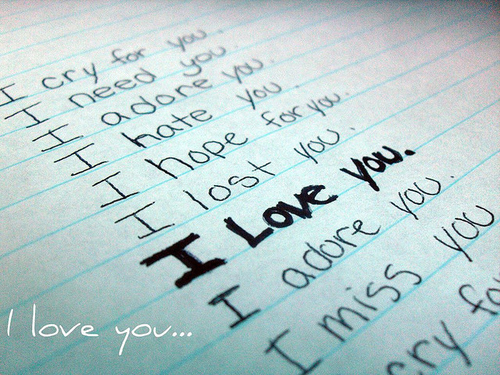 I cry for you.
I need you.
I adore you.
I hate you.
I hope for you.
I lost you.
I Love you.
I adore you.
I miss you
cry for
I love you...